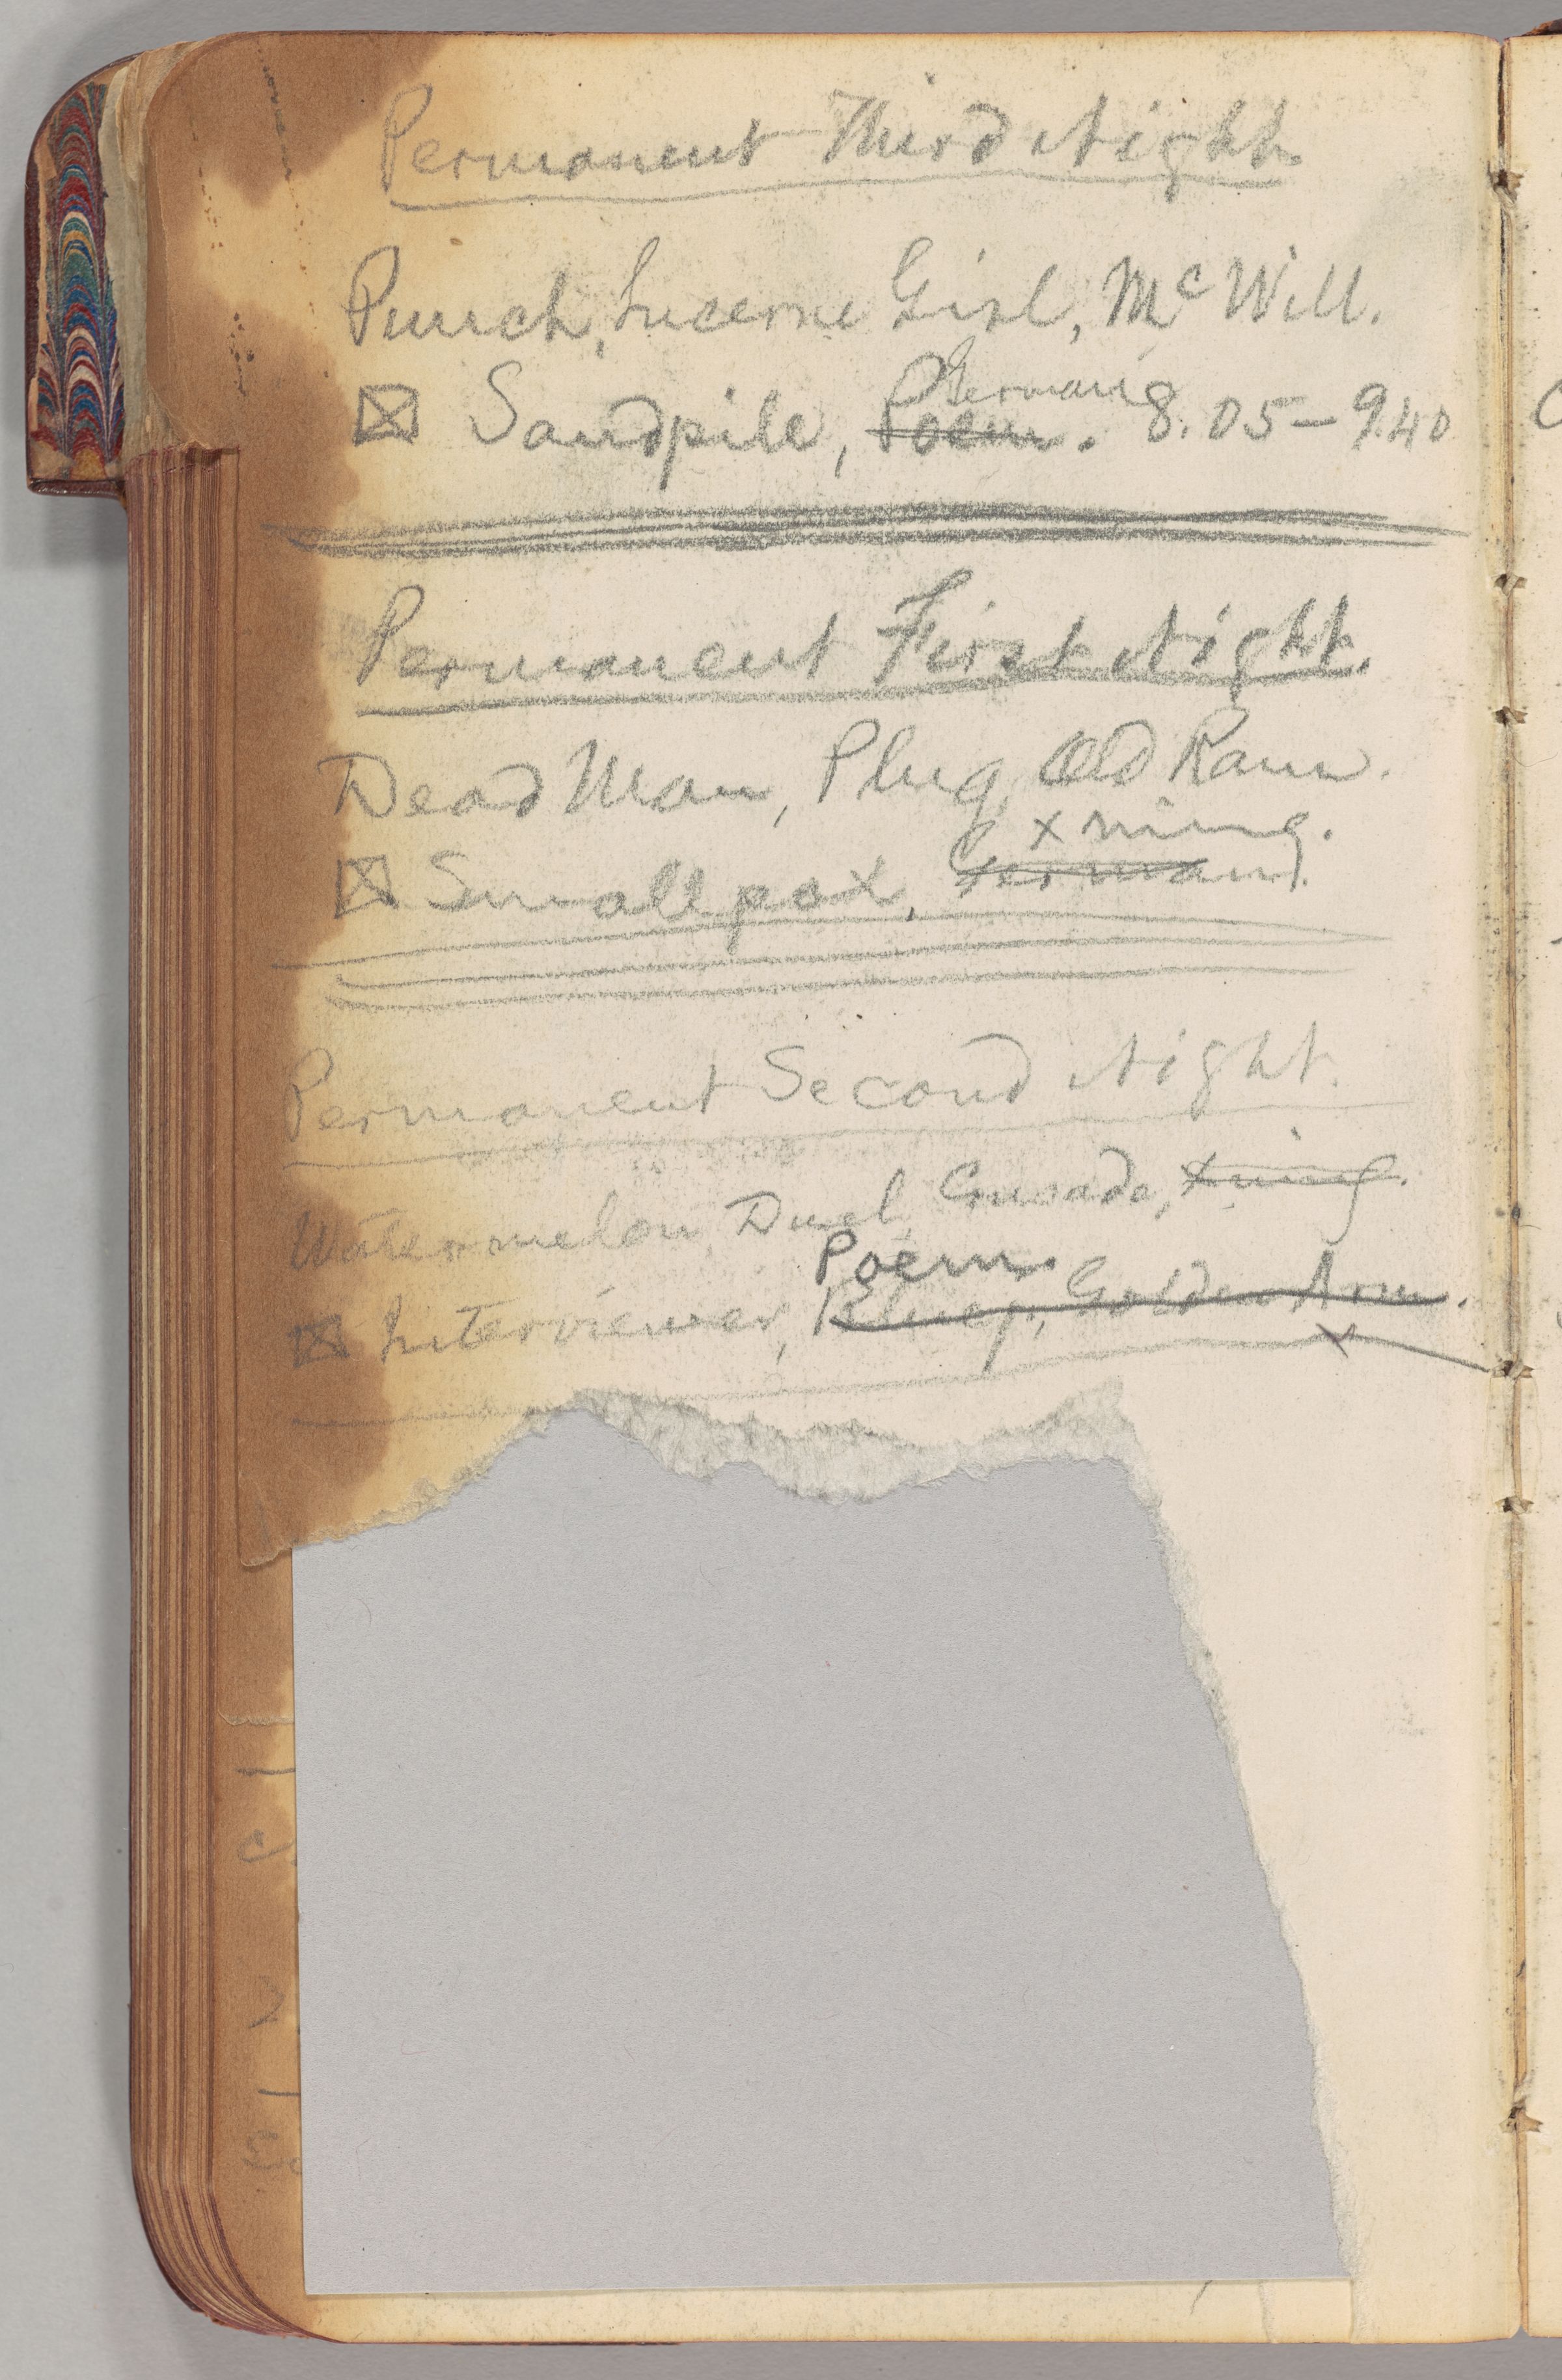 Permanent Third Night.
Punch, Lucerne Girl, Mc Will.
German
☒ Sandpile, Poem. 8.05–9.40
Permanent First Night.
Dead Man, Plug, Old Ram.
xning.
☒ Smallpox, German.
Permanent Second Night.
Watermelon, Duel, Crusade, xning.
Poem.
☒ Interviewer, Bluej, Golden Arm.